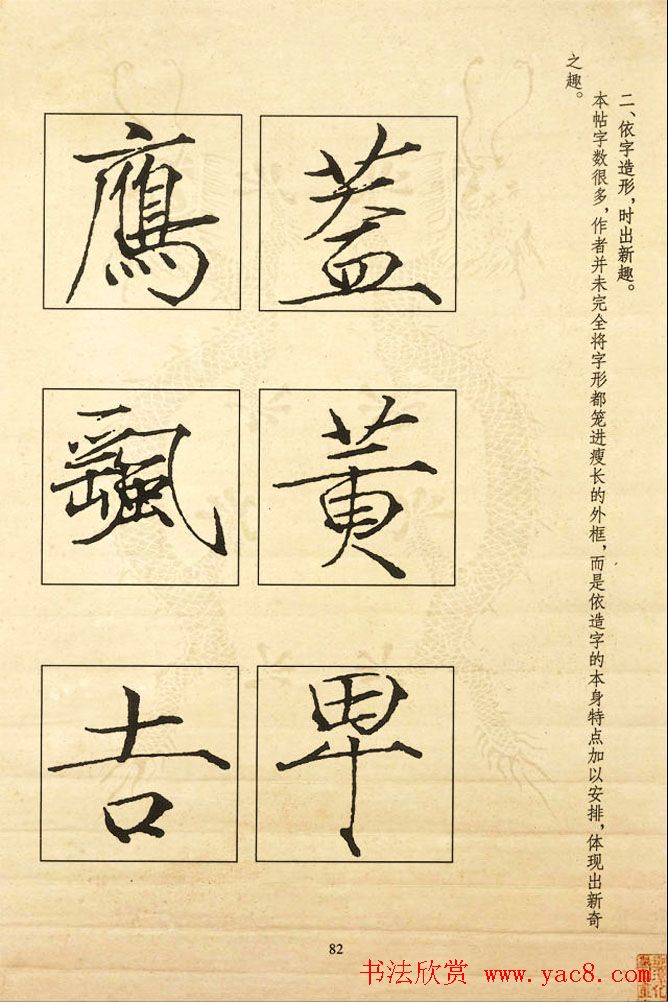 二、依字造形，时出新趣。
本帖字数很多，作者并未完全将字形都笼进瘦长的外框，而是依造字的本身特点加以安排，体现出新奇
之趣。
蓋
黄
卑
鷹
飄
吉
82
书法欣赏 www.yac8.com